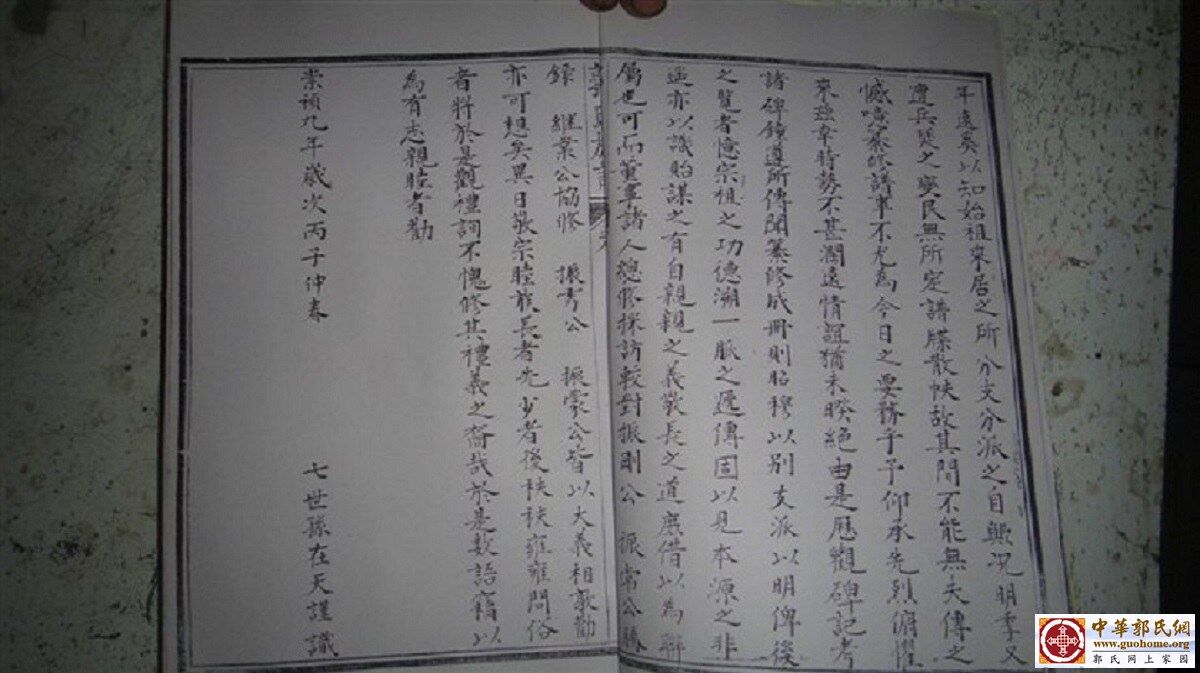 年遠奚以知始祖來居之所分支分派之自歟況明季又
遭兵燹之變民無所定譜牒散帙故其間不能無失傳之
憾噫纂修譜事不尤為今日之要務乎予仰承先烈俯惟
來茲幸時勢不甚濶遠情誼猶未睽絕由是歷觀碑記考
諸碑錄遵所傳聞纂修成冊則昭穆以別支派以明俾後
之覽者憶宗祖之功德溯一脈之遞傳固以見本源之非
遥亦以識貽謀之有自親親之義敬長之道庶借以為聯
屬也可而董事諸人總務採訪較對振剛公 振常公
錄 繼業公協修 振秀公 振霖公皆以大義相敦勸
亦可想矣異日敬宗睦族長者先少者後秩秩雍雍問俗
者將於是觀禮詞不愧修其禮義之裔哉於是數語竊以
為有志親睦者勸
崇禎九年歲次丙子仲春
七世孫在天謹識
中華郭氏網
www.guohome.org
郭氏网上家园